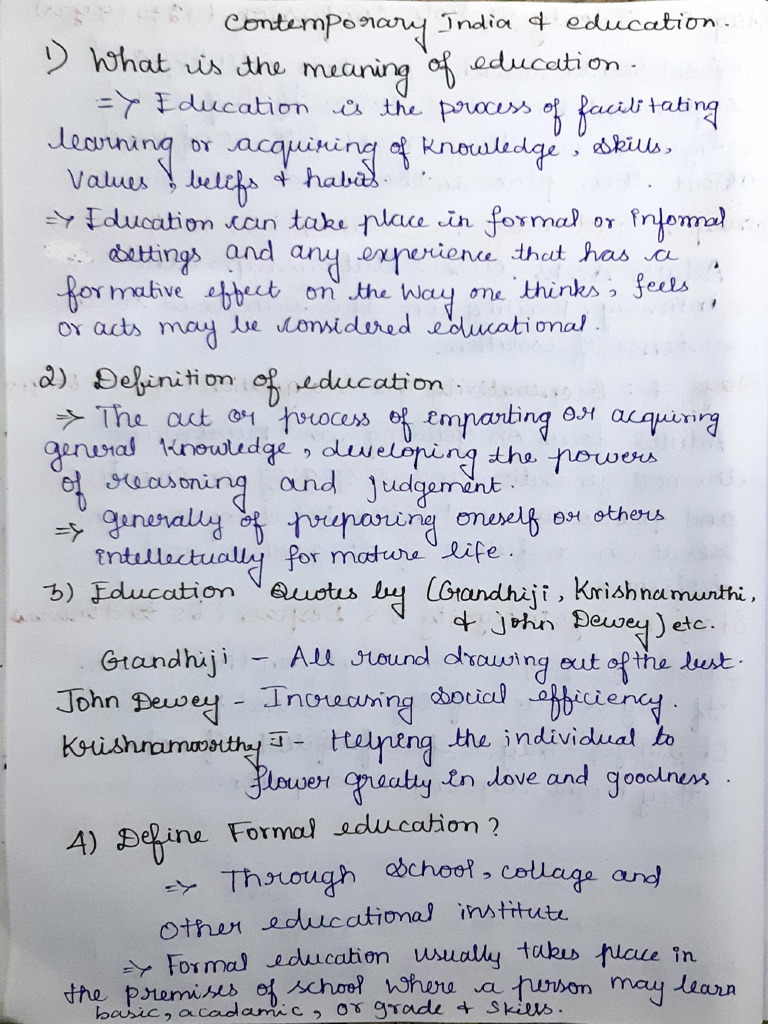 Contemporary India & education.
1) What is the meaning of education.
=> Education is the process of facilitating
learning or acquiring of knowledge, skills,
Values, belifs & habits.
=> Education can take place in formal or informal
settings and any experience that has a
formative effect on the way one thinks, feels
or acts may be considered educational.
2) Definition of education.
=> The act or process of emparting or acquiring
general knowledge, developing the powers
of reasoning and judgement.
=> generally of preparing oneself or others
intellectually for mature life.
3) Education Quotes by (Gandhiji, Krishnamurthi,
& john Dewey) etc.
Gandhiji - All round drawing out of the best.
John Dewey - Increasing social efficiency.
Krishnamoorthy J - Helping the individual to
flower greatly in love and goodness.
4) Define Formal education?
=> Through school, collage and
other educational institute
=> Formal education usually takes place in
the premises of school where a person may learn
basic, acadamic, or grade & skills.